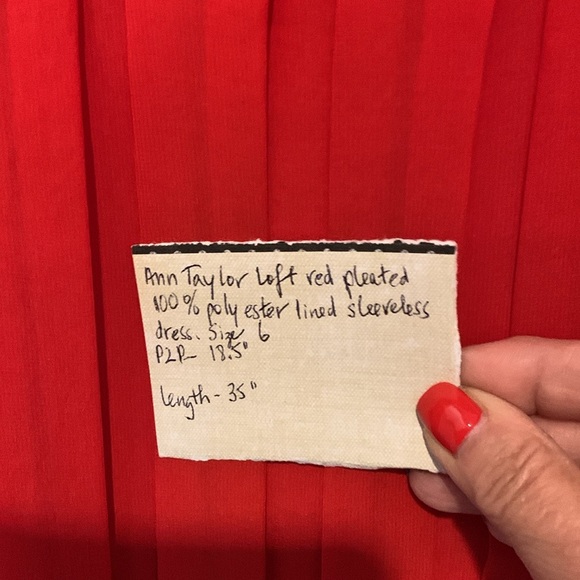 Ann Taylor Loft red pleated
100% polyester lined sleeveless
dress. Size 6
P2P- 18.5"
length - 35"